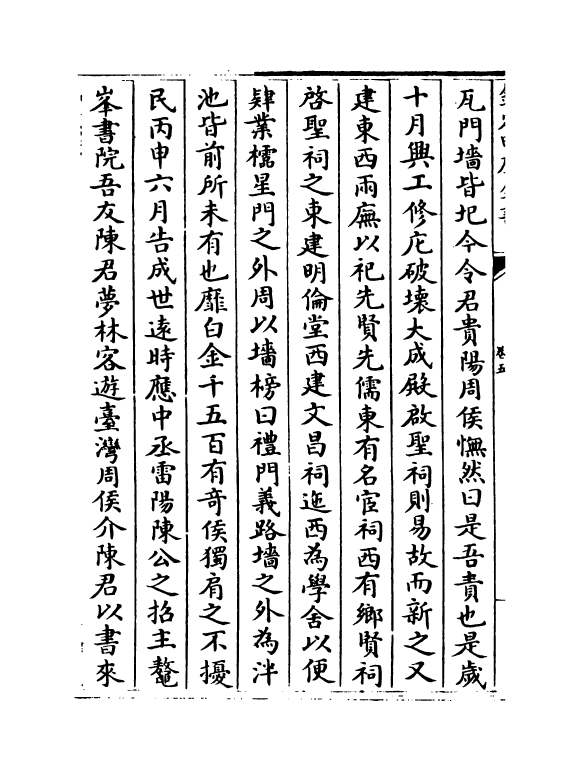 瓦門墻皆圯今令君貴陽周侯憮然曰是吾責也是歲
十月興工修庀破壞大成殿啟聖祠則易故而新之又
建東西兩廡以祀先賢先儒東有名宦祠西有鄉賢祠
啓聖祠之東建明倫堂西建文昌祠迤西為學舍以便
肄業櫺星門之外周以墻榜曰禮門義路墻之外為泮
池皆前所未有也靡白金千五百有奇侯獨肩之不擾
民丙申六月告成世遠時應中丞雷陽陳公之招主鰲
峯書院吾友陳君夢林客遊臺灣周侯介陳君以書來
卷五